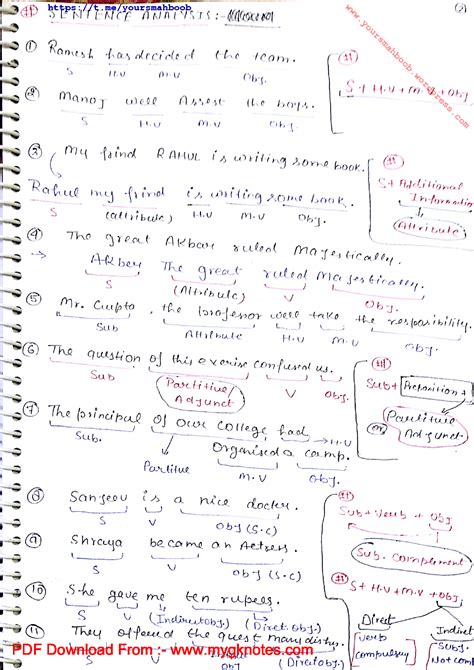 https://t.me/yoursmahboob
SENTENCE ANALYSIS:-
www.yoursmahboob.wordpress.com
① Ramesh has decided the team.
S H.V M.V Obj.
S + H.V + M.V + Obj.
② Manoj well Arrest the boys.
S H.V M.V Obj.
③ My frind RAHUL is writing some book.
Rahul my frind is writing some book.
S (attribute) H.V M.V Obj.
S + Additional
Information
(Attribute)
④ The great AKbar ruled Majestically.
→ AKber The great ruled Majestically.
S (Attribute) V Obj.
⑤ Mr. Gupta, the professor well take the resposibility.
Sub Attribute H.V M.V Obj.
⑥ The question of this exerise confused us.
Sub Partitive/ V Obj.
Adjunct
Sub + Preposition +
Partitive
or Adjunct.
⑦ The principal of our college had
Sub. → H.V
Organised a camp.
Partitive M.V Obj.
⑧ Sanjeev is a nice docter.
S V Obj (S.C)
Sub + Verb + Obj
Sub. Complement
⑨ Shreya became an Actress.
S V Obj (S.C)
⑩ She gave me ten rupees.
S V (Indirect Obj) (Direct. Obj)
S + H.V + M.V + Obj.
Direct Indirect
verb Subj
compulsury Not
⑪ They offered the guest many dishes
PDF Download From :- www.mygknotes.com